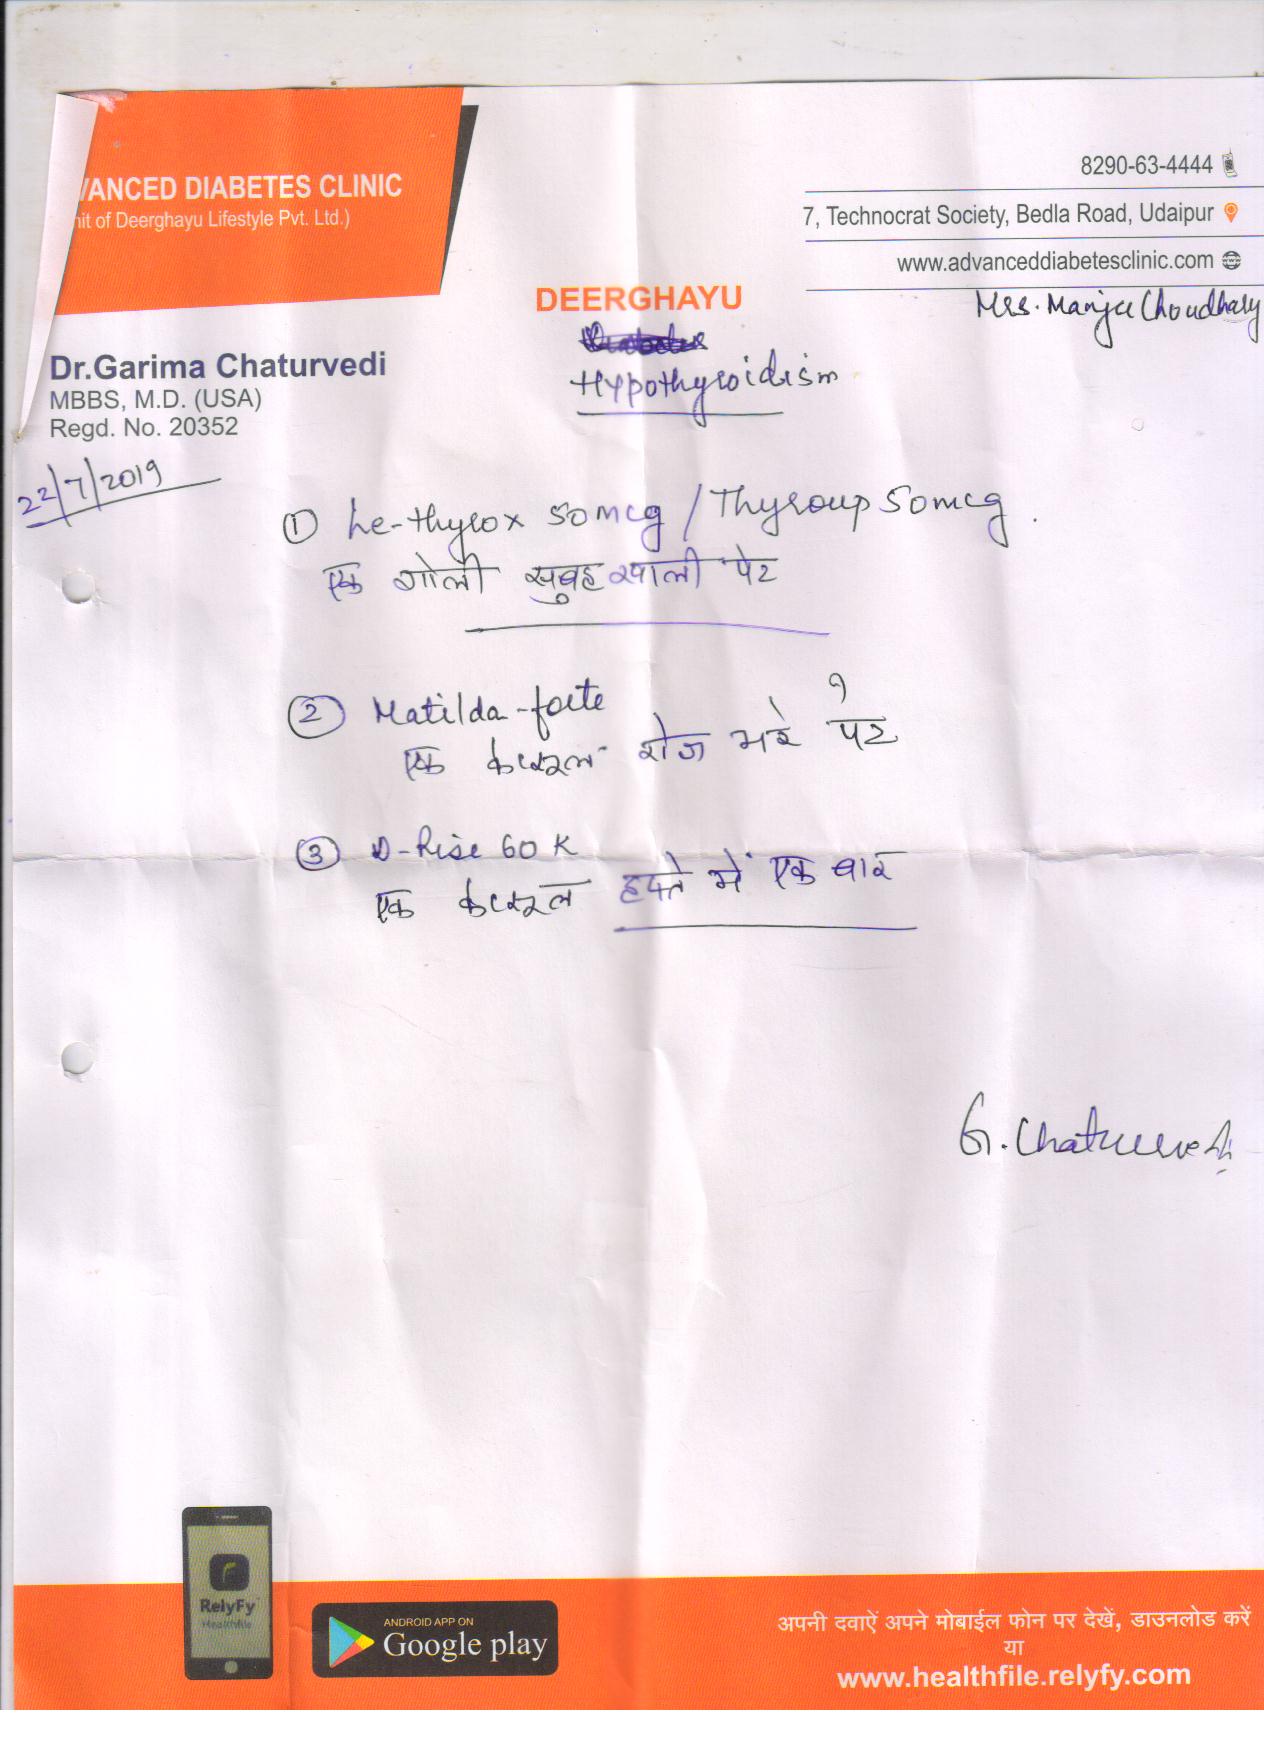 VANCED DIABETES CLINIC
nit of Deerghayu Lifestyle Pvt. Ltd.)
8290-63-4444
7, Technocrat Society, Bedla Road, Udaipur
www.advanceddiabetesclinic.com
DEERGHAYU
Mrs. Manju Choudhary
Hypothyroidism
Dr.Garima Chaturvedi
MBBS, M.D. (USA)
Regd. No. 20352
22/7/2019
① Le-thyrox 50mcg / Thyroup 50mcg
एक गोली सुबह खाली पेट
② Matilda-forte
एक केप्सूल रोज भरे पेट
③ D-Rise 60 K
एक केप्सूल हफ्ते में एक बार
G. Chaturvedi
RelyFy
Healthfile
ANDROID APP ON
Google play
अपनी दवाऐं अपने मोबाईल फोन पर देखें, डाउनलोड करें
या
www.healthfile.relyfy.com